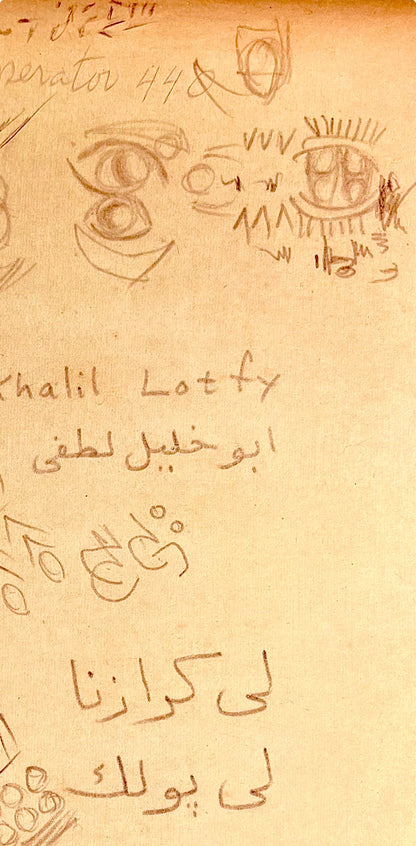 perator 448
Khalil Lotfy
ابو خليل لطفى
لى كرازنا
لى پولك